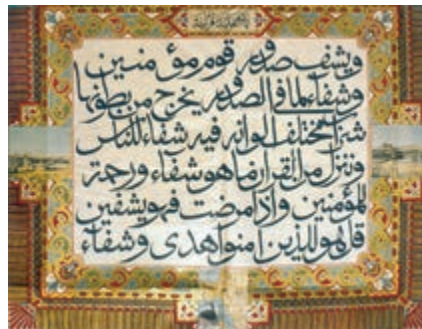 ويشف صدور قوم مؤمنين
وشفاء لما في الصدور يخرج من بطونها
شراب مختلف الوانه فيه شفاء للناس
وننزل من القران ما هو شفاء ورحمة
للمؤمنين واذا مرضت فهو يشفين
قل هو للذين امنوا هدى وشفاء